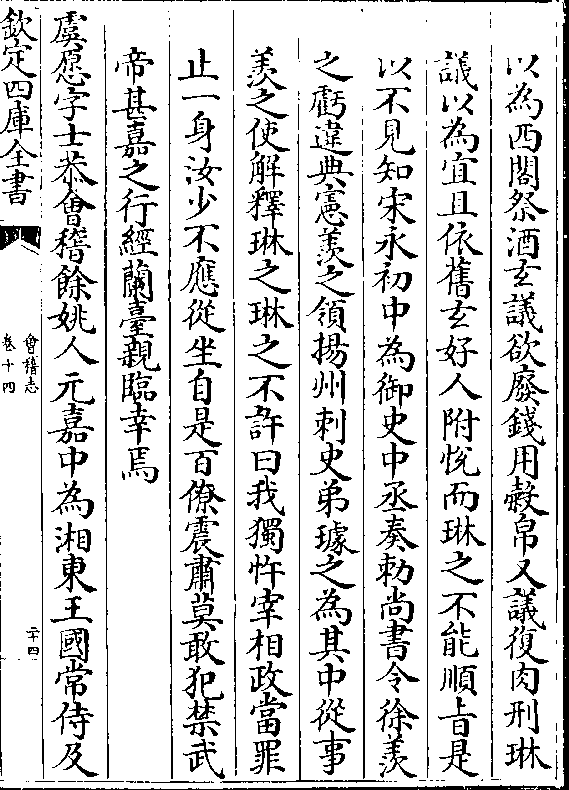 以為西閣祭酒玄議欲廢錢用糓帛又議復肉刑琳
議以為宜且依舊玄好人附悅而琳之不能順旨是
以不見知宋永初中為御史中丞奏劾尚書令徐羨
之虧違典憲羨之領揚州刺史弟璩之為其中從事
羨之使解釋琳之琳之不許曰我獨忤宰相政當罪
止一身汝少不應從坐自是百僚震肅莫敢犯禁武
帝甚嘉之行經蘭臺親臨幸焉
虞愿字士恭會稽餘姚人元嘉中為湘東王國常侍及
欽定四庫全書
會稽志
卷十四
二十四